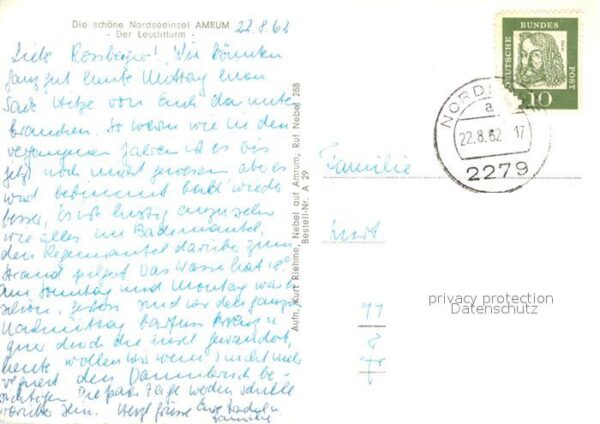 Die schöne Nordseeinsel AMRUM
- Der Leuchtturm -
22.8.62
Liebe Rossberger! Wir könnten
ganz gut heute Mittag einen
Sack Hitze von Euch da unten
brauchen. So warm wie in den
vergangenen Jahren ist es bis
jetzt noch nicht gewesen aber es
wird bestimmt bald wieder
besser. Es ist lustig anzusehen
wie alles im Bademantel,
den Regenmantel darüber zum
Strand pilgert. Das Wasser hat 18°.
Am Sonntag und Montag war es
schön, gestern sind wir den ganzen
Nachmittag barfuss kreuz u.
quer durch die Insel gewandert,
heute wollen wir wenn's nicht mehr
regnet den
sichtigen. Die paar Tage werden schnell
vorüber sein. Herzl. Grüsse Eure
Familie
Aufn. Kurt Riehme, Nebel auf Amrum, Ruf Nebel 288
Bestell-Nr. A 29
DEUTSCHE BUNDESPOST
10
NORD
a
22.8.62 17
2279
Familie
Kurt
77
privacy protection
Datenschutz